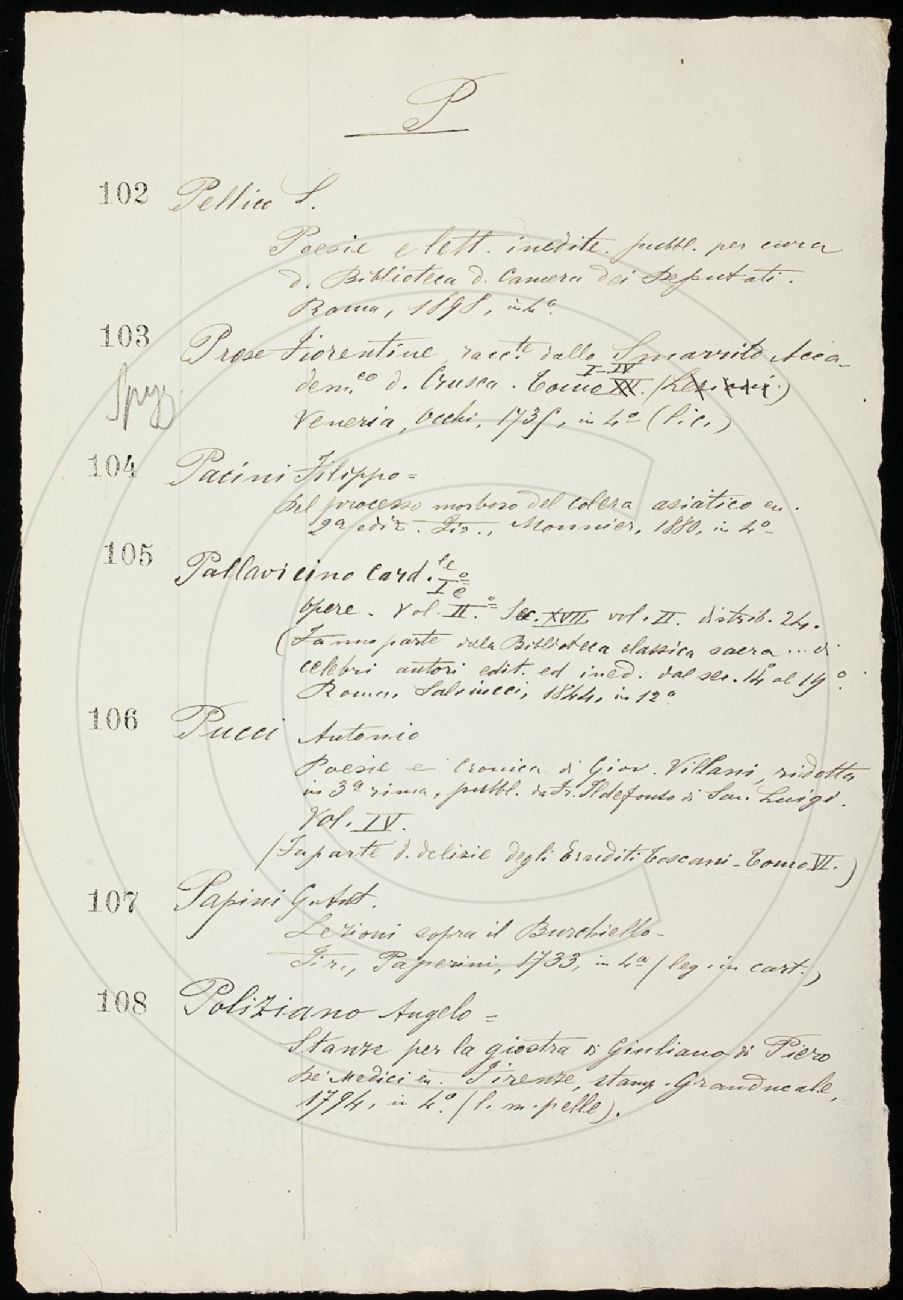 P
102 Pellico S.
Poesie e lett. inedite pubbl. per cura
d. Biblioteca d. Camera dei Deputati.
Roma, 1898, in 4°.
103 Prose fiorentine, racc.te dallo Smarrito Acca-
I-IV
dem.co d. Crusca. Tomo XV.
Venezia, Occhi, 1735, in 4° (l.c.)
104 Pacini Filippo =
Del processo morboso del colera asiatico
2a ediz. Fir., Monnier, 1880, in 4°
105 Pallavicino Card.le
I°
Opere. Vol. II.° Sec. XVII vol. II. distrib. 24.
(Fanno parte della Biblioteca classica sacra ... di
celebri autori edit. ed ined. dal sec. 14° al 19°.
Roma, Salviucci, 1844, in 12°
106 Pucci Antonio
Poesie e Cronica di Giov. Villani, ridotta
in 3a rima, pubbl. da Fr. Ildefonso di San Luigi.
Vol. IV.
(Fa parte d. delizie degli Eruditi Toscani - Tomo VI.)
107 Papini G. Ant.
Lezioni sopra il Burchiello -
Fir., Paperini, 1733, in 4° (leg. in cart.)
108 Poliziano Angelo =
Stanze per la giostra di Giuliano di Piero
de' Medici Firenze, stamp. Granducale,
1794, in 4°. (l. m. pelle).